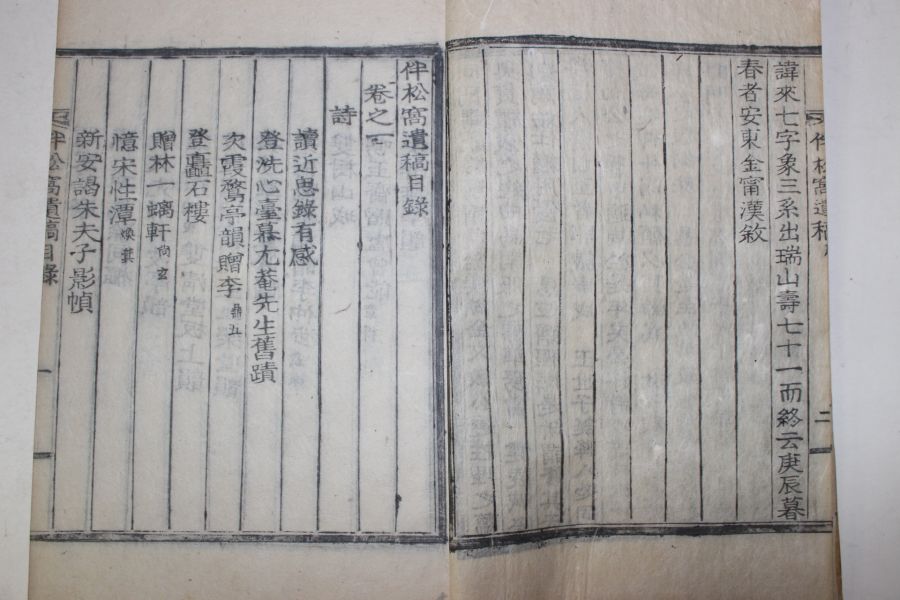 伴松窩遺稿
二
諱來七字象三系出瑞山壽七十一而終云庚辰暮
春者安東金甯漢敘
伴松窩遺稿目錄
卷之一
詩
讀近思錄有感
登洗心臺慕尤菴先生舊蹟
次霞鶩亭韻贈李鼎五
登矗石樓
贈林一螭軒尚玄
憶宋性潭煥箕
新安謁朱夫子影幀
伴松窩遺稿目錄
一